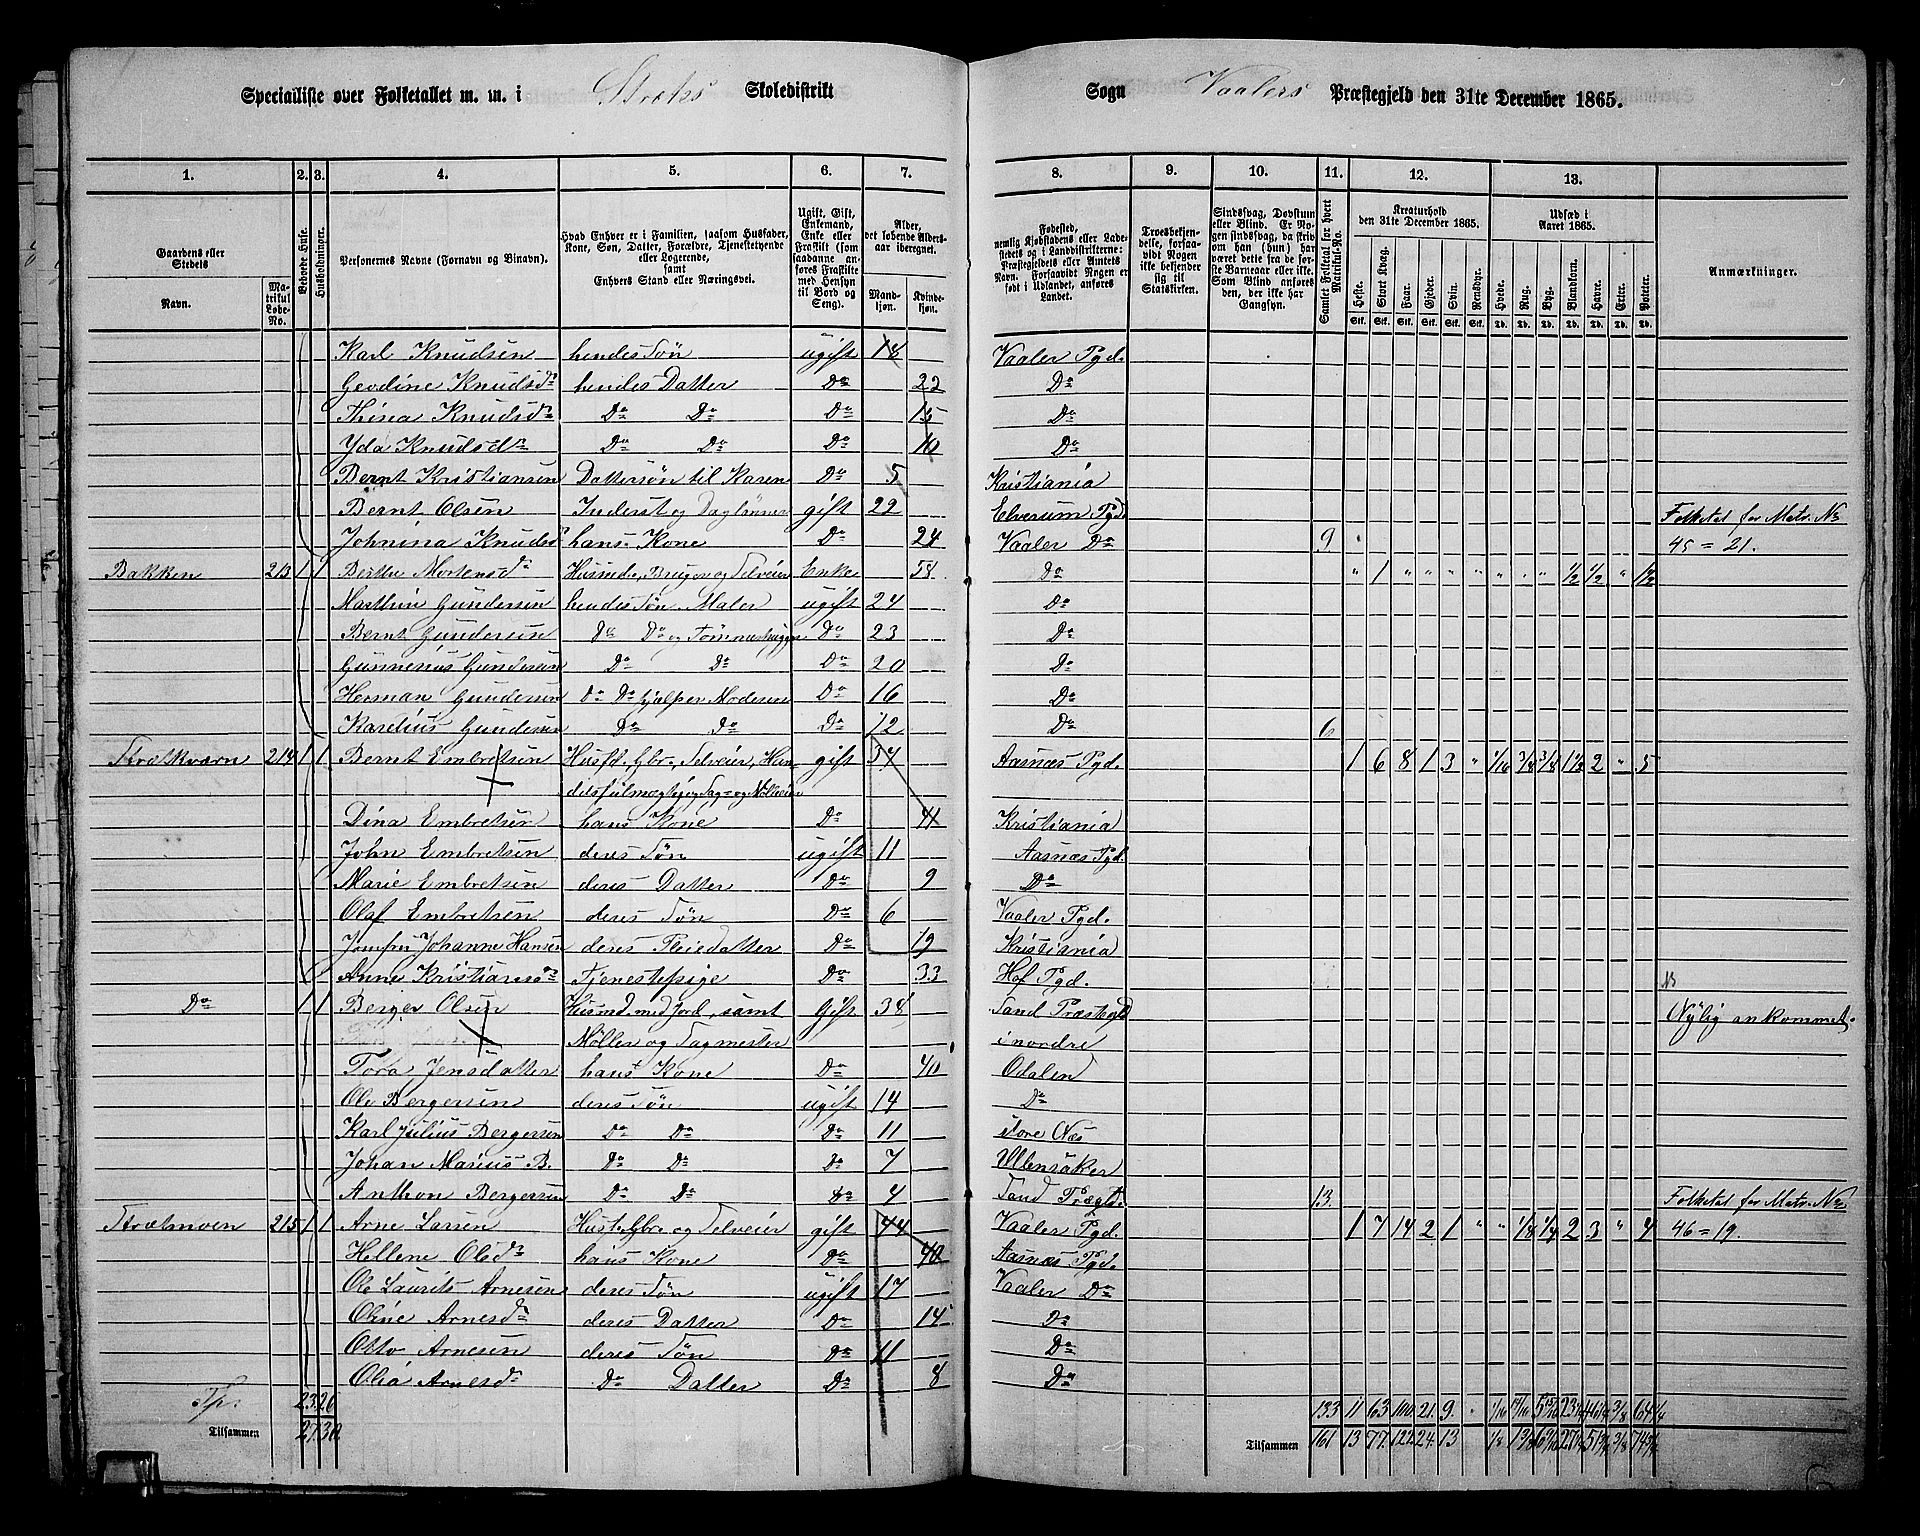 Specialliste over Folketallet m. m. i Stræts Skoledistrikt Sogn Vaalers Præstegjeld den 31te December 1865.
1. 2. 3. 4. 5. 6. 7. 8. 9. 10. 11. 12. 13.
Gaardens eller Stedets Navn. Matrikul Løbe-No. Beboede Huse. Husholdninger. Personernes Navne (Fornavn og Binavn). Hvad Enhver er i Familien, saasom Husfader, Kone, Søn, Datter, Forældre, Tjenestetyende eller Logerende, samt Enhvers Stand eller Næringsvei. Ugift, Gift, Enkemand, Enke eller Fraskilt (som saadanne anføres Fraskilte med Hensyn til Bord og Seng). Alder, det løbende Aldersaar iberegnet. Mandkjøn. Kvindekjøn.
Fødested, nemlig Kjøbstadens eller Ladestedets og i Landdistrikterne: Præstegjeldets eller Amtets Navn. Forsaavidt Nogen er født i Udlandet, anføres Landet. Troesbekjendelse, forsaavidt Nogen ikke bekjender sig til Statskirken. Sindssvag, Døvstum eller Blind. Er Nogen sindssvag, da skriv om han (hun) har været dette fra de første Barneaar eller ikke. Som Blind anføres den, der ikke har Gangsyn. Samlet Folketal for hvert Matrikul-No. Kreaturhold den 31te December 1865. Heste. Stort Kvæg. Faar. Gjeder. Svin. Rensdyr. Udsæd i Aaret 1865. Hvede. Rug. Byg. Blandkorn. Havre. Erter. Poteter. Anmærkninger.
Karl Knudsen hendes Søn ugift 18 Vaaler Pgd.
Geodine Knudsd. hendes Datter Do 22 Do
Thina Knudsd. Do Do Do 15 Do
Yda Knudsd. Do Do Do 10 Do
Bernt Kristiansen Dattersøn til Karen Do 5 Kristiania
Bernt Olsen Inderst og Daglønner gift 22 Elverum Pgd. Folketal for Matr. No
Johnina Knudsd. hans Kone Do 24 Vaaler Do 9 45 = 21.
Bakken 213 1 1 Berthe Mortensd. Husmd., Bruger og Selveier Enke 58 Do " 1 " " " " " " " 1/2 1/2 " 1 1/2
Marthin Gundersen hendes Søn. Maler ugift 24 Do
Bernt Gundersen Do Do og Tømmerhugger Do 23 Do
Gunnerius Gundersen Do Do Do 20 Do
Herman Gundersen Do Do hjælper Moderen Do 16 Do
Karelius Gundersen Do Do Do 12 Do 6
Strætkværn 214 1 1 Bernt Embretsen Husfd., Gbr., Selveier, Han- gift 37 Aasnæs Pgd. 1 6 8 1 3 " 1/16 3/8 3/8 1 1/2 2 " 5
delsfuldmægtig og Sag- og Mølleeier
Dina Embretsen hans Kone Do 41 Kristiania
John Embretsen deres Søn ugift 11 Aasnæs Pgd.
Marie Embretsen deres Datter Do 9 Do
Olaf Embretsen deres Søn Do 6 Vaaler Pgd.
Jomfru Johanne Hansen deres Pleiedatter Do 19 Kristiania
Anne Kristiansd. Tjenestepige Do 33 Hof Pgd.
Do 1 1 Berger Olsen Husmd. med Jord, samt Gift 38 Sand Præstgld Nylig ankommet.
Møller og Sagmester i nordre
Tora Jensdatter hans Kone Do 40 Odalen
Ole Bergersen deres Søn ugift 14 Do
Karl Julius Bergersen Do Do Do 11 store Næs
Johan Marius B. Do Do Do 7 Ullensaker
Anthon Bergersen Do Do Do 4 Sand Prægd. 13. Folketal for Matr. No
Strætmoen 215 1 1 Arne Larsen Husf. Gbr. og Selveier gift 44 Vaaler Pgd. 1 7 14 2 1 " " 1/8 1/4 2 3 " 4 46 = 19.
Hellene Olsd. hans Kone Do 40 Aasnæs Pgd.
Ole Laurits Arnesen deres Søn ugift 17 Vaaler Do
Oline Arnesd. deres Datter Do 14 Do
Otto Arnesen deres Søn Do 11 Do
Olia Arnesd. Do Datter Do 8 Do
23 26 133 11 63 100 21 9
Tilsammen 27 30 Tilsammen 161 13 77 122 24 13